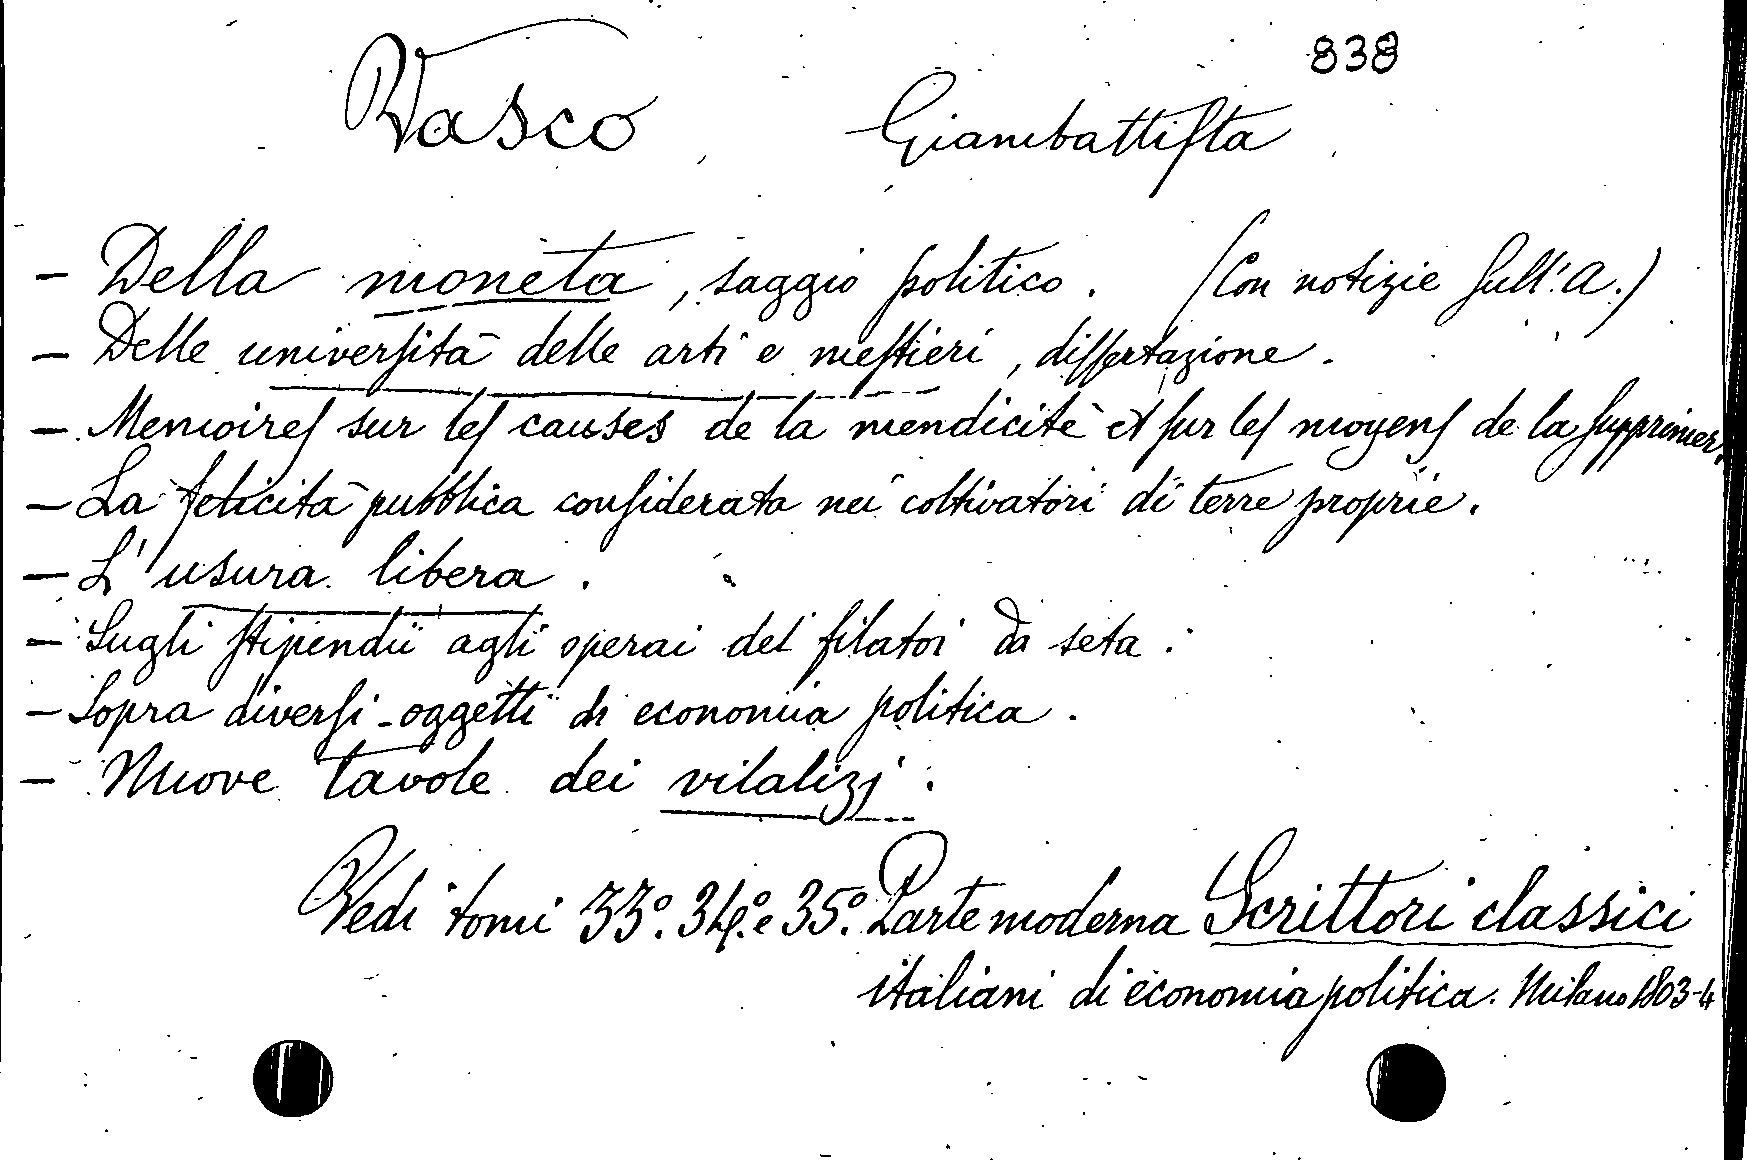 838
Vasco Giambattista
- Della moneta, saggio politico. (Con notizie sull'A.)
- Delle università delle arti e mestieri, dissertazione.
- Memoires sur les causes de la mendicité et sur les moyens de la supprimer.
- La felicità pubblica considerata nei coltivatori di terre proprie.
- L'usura libera.
- Sugli stipendii agli operai dei filatoi da seta.
- Sopra diversi oggetti di economia politica.
- Nuove tavole dei vitalizj.
Vedi tomi 33º. 34º. e 35º. Parte moderna Scrittori classici
italiani di economia politica. Milano 1803-4